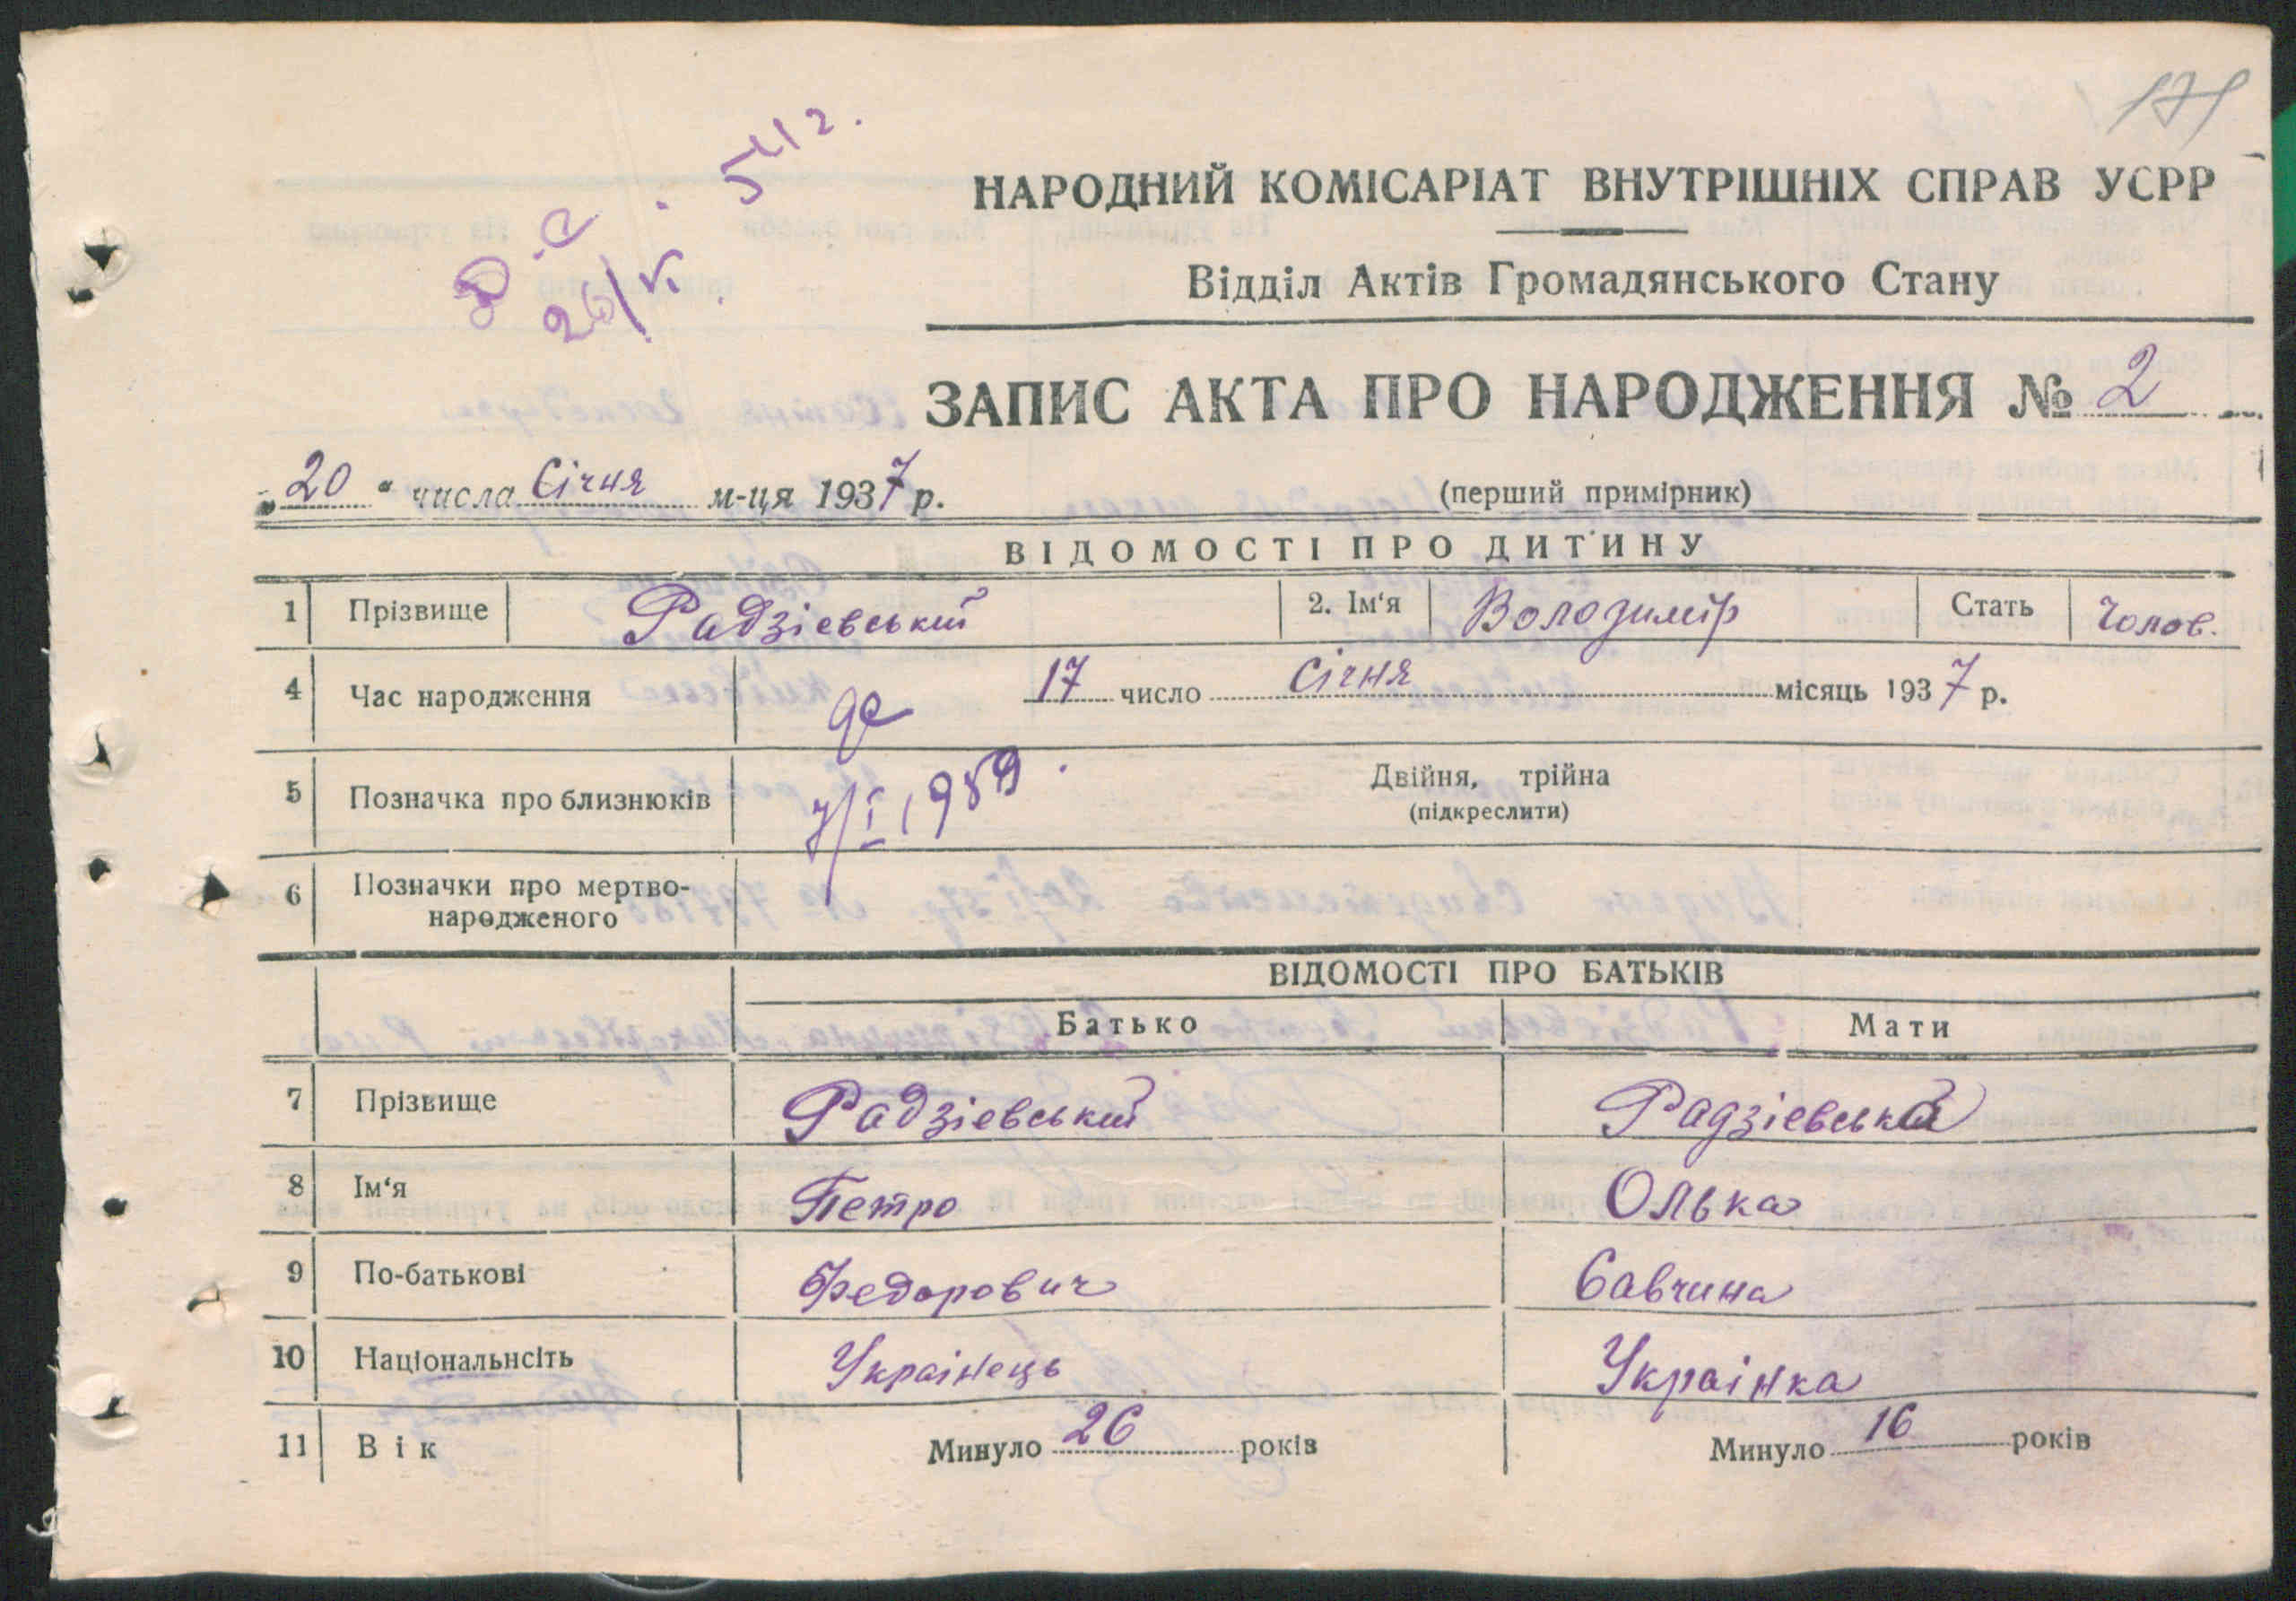 171
54 г.
26/V.
НАРОДНИЙ КОМІСАРІАТ ВНУТРІШНІХ СПРАВ УСРР
Відділ Актів Громадянського Стану
ЗАПИС АКТА ПРО НАРОДЖЕННЯ № 2
„20“ числа Січня м-ця 1937 р. (перший примірник)
ВІДОМОСТІ ПРО ДИТИНУ
1 Прізвище Радзієвський 2. Ім‘я Володимір Стать Чолов.
4 Час народження 17 число Січня місяць 1937 р.
5 Позначка про близнюків 7/I 1959. Двійня, трійна
(підкреслити)
6 Позначки про мертво-
народженого
ВІДОМОСТІ ПРО БАТЬКІВ
Батько Мати
7 Прізвище Радзієвський Радзієвська
8 Ім‘я Петро Олька
9 По-батькові Федорович Савчина
10 Національнсіть Украінець Украінка
11 Вік Минуло 26 років Минуло 16 років